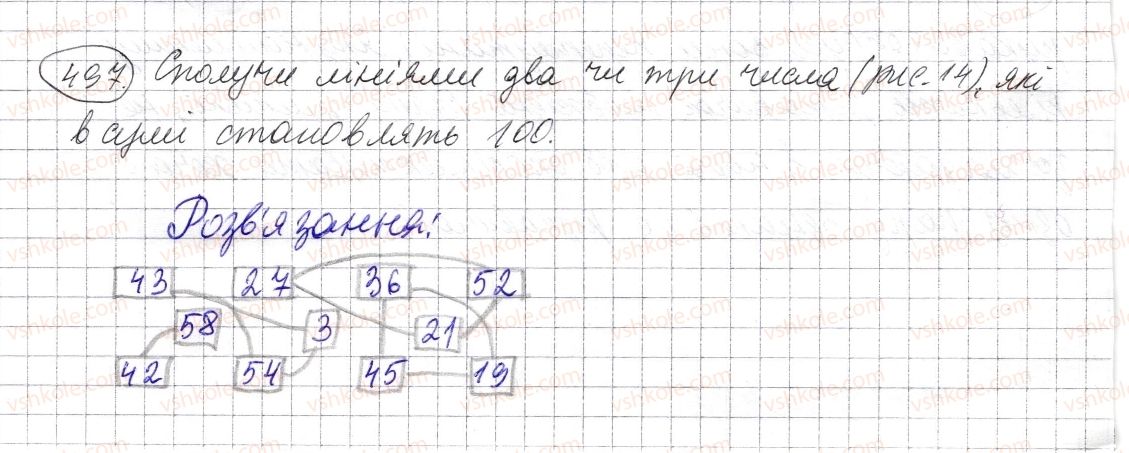 497. Сполучи лініями два чи три числа (рис. 14), які
в сумі становлять 100.
Розв'язання:
43 27 36 52
58 3 21
42 54 45 19
vshkole.com